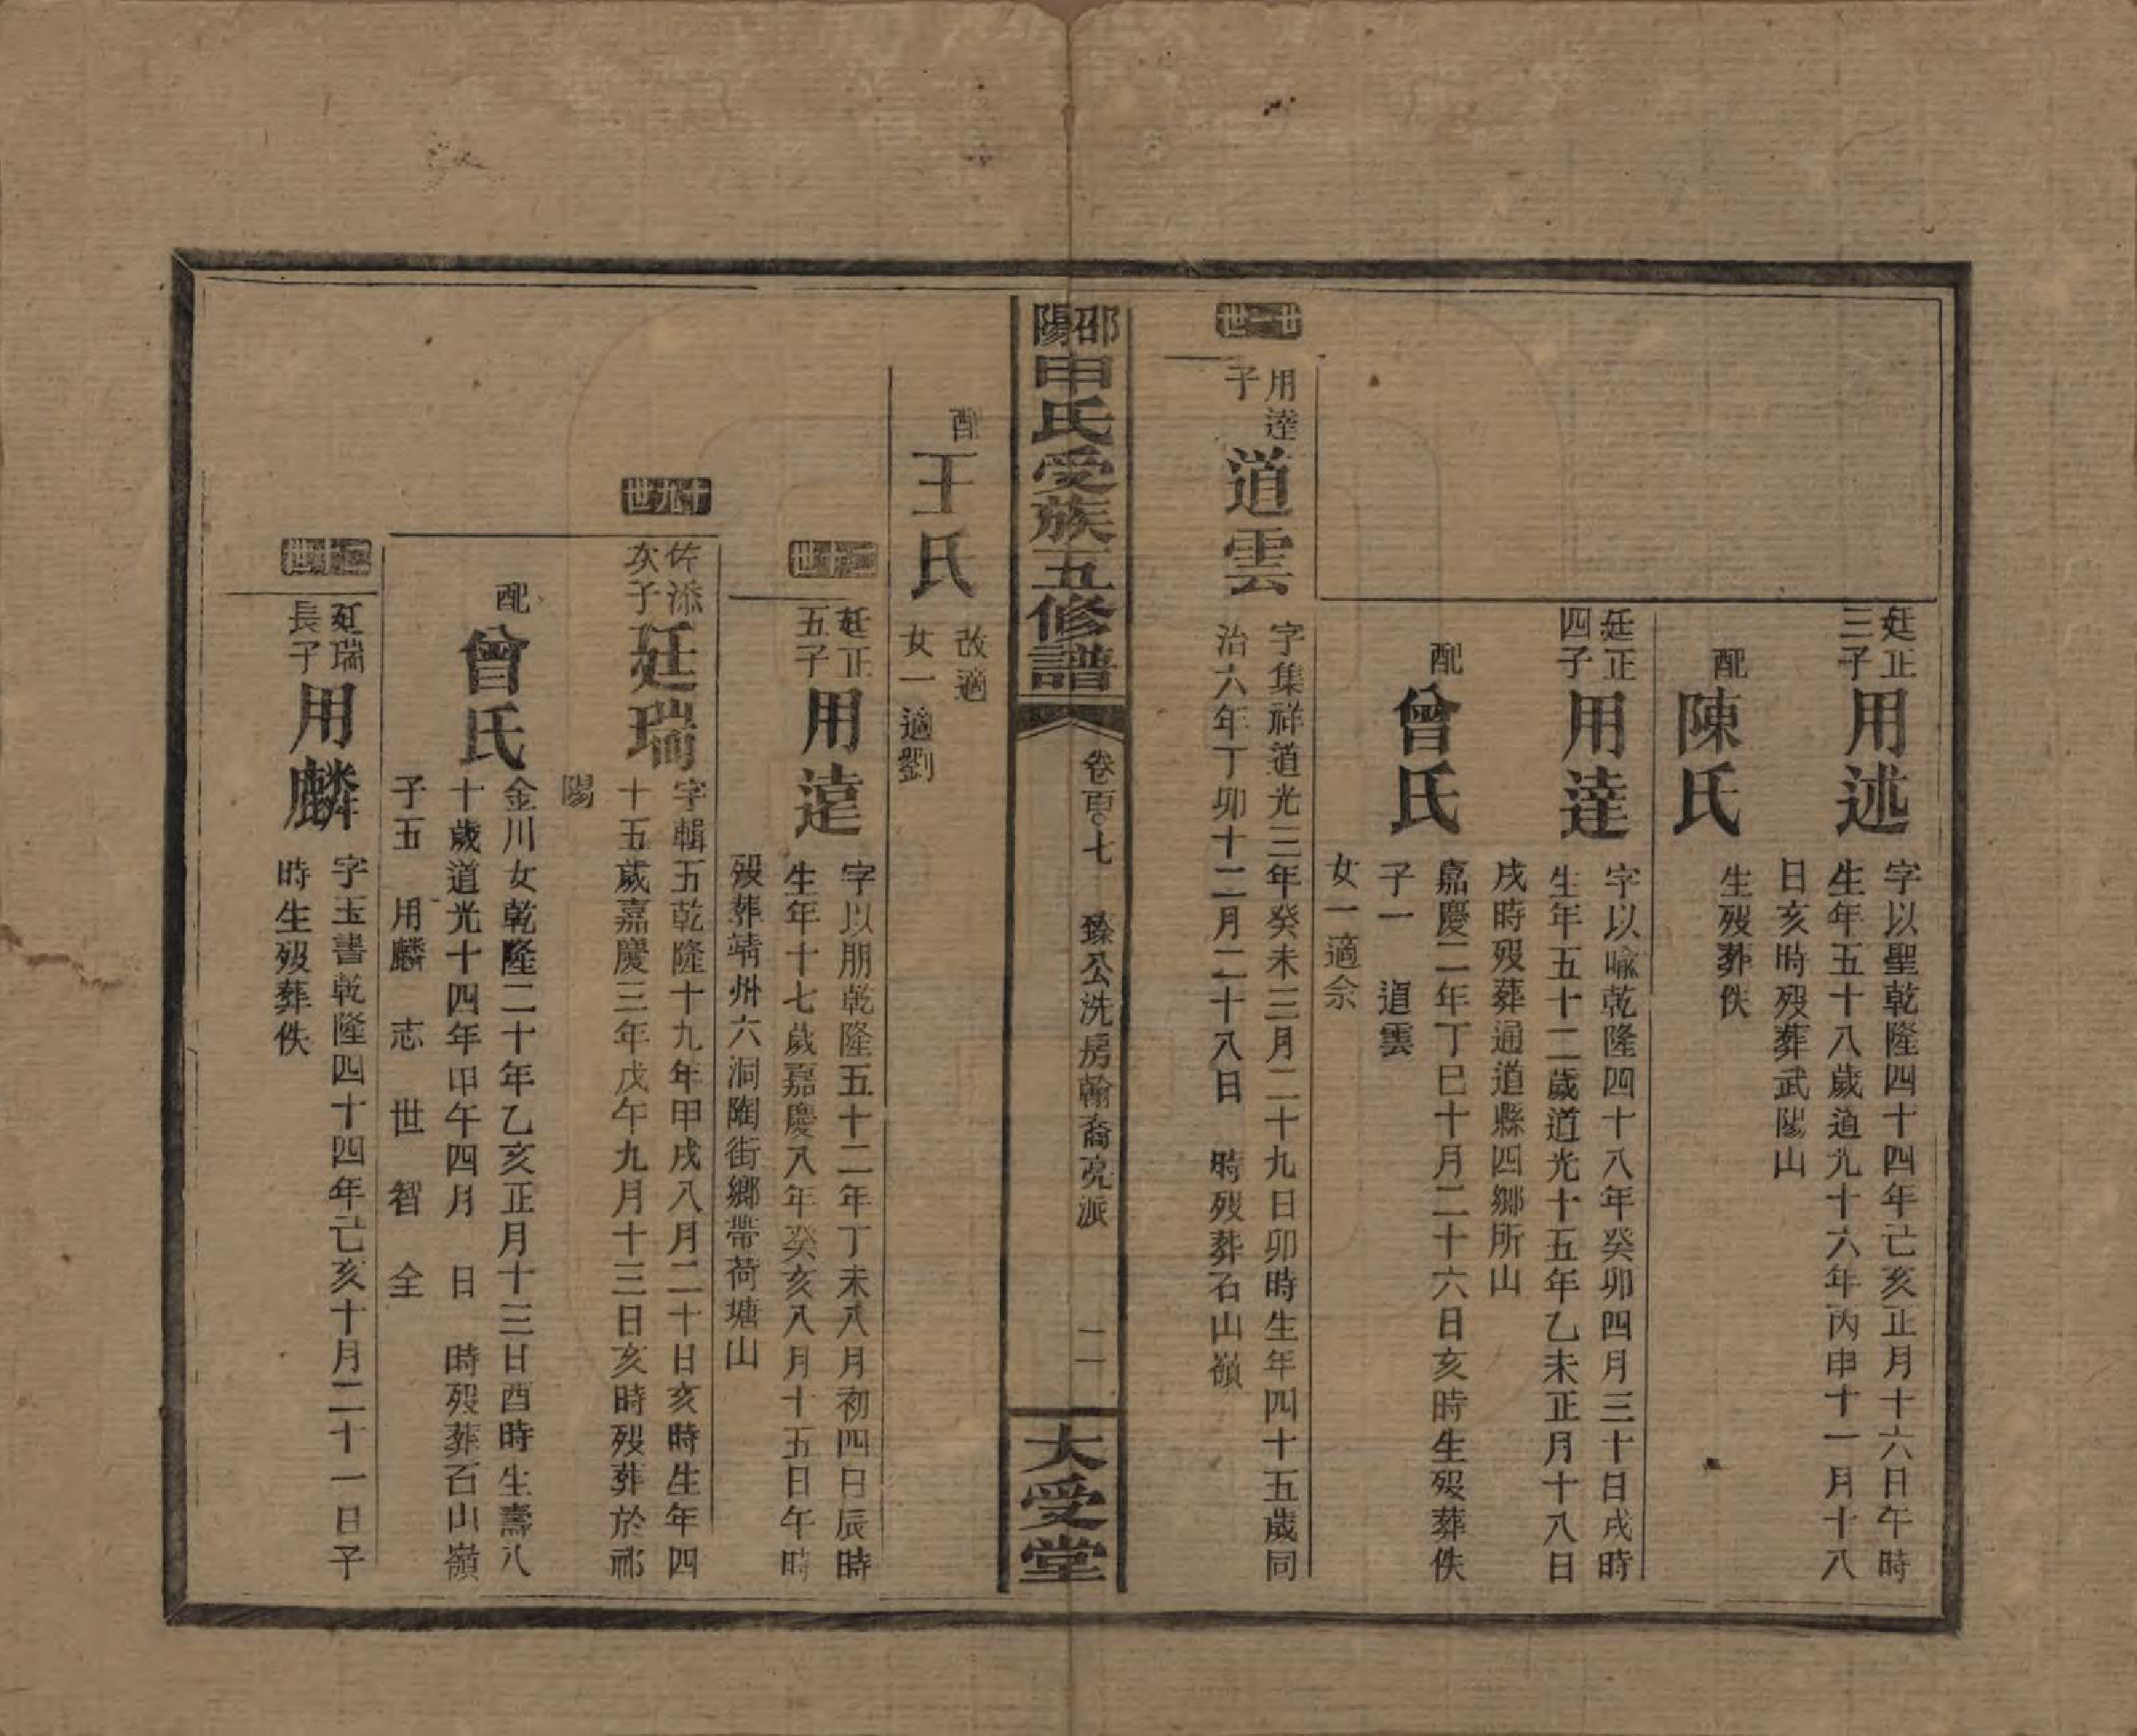 廷正三子
用述
字以聖乾隆四十四年己亥正月十六日午時
生年五十八歲道光十六年丙申十一月十八
日亥時歿葬武陽山
配
陳氏
生歿葬佚
廷正四子
用達
字以喻乾隆四十八年癸卯四月三十日戌時
生年五十二歲道光十五年乙未正月十八日
戌時歿葬通道縣四鄉所山
配
曾氏
嘉慶二年丁巳十月二十六日亥時生歿葬佚
子一　道雲
女一適佘
廿一世
用達子
道雲
字集祥道光三年癸未三月二十九日卯時生年四十五歲同
治六年丁卯十二月二十八日　時歿葬石山嶺
邵陽申氏受族五修譜
卷百〇七　臻公洗房翰裔亮派
二
大受堂
配
王氏
改適
女一適劉
二十世
廷正五子
用遠
字以朋乾隆五十二年丁未八月初四日辰時
生年十七歲嘉慶八年癸亥八月十五日午時
歿葬靖州六洞陶街鄉帶荷塘山
十九世
佐添次子
廷瑞
字輯五乾隆十九年甲戌八月二十日亥時生年四
十五歲嘉慶三年戊午九月十三日亥時歿葬於祁
陽
配
曾氏
金川女乾隆二十年乙亥正月十三日酉時生壽八
十歲道光十四年甲午四月　日　時歿葬石山嶺
子五　用麟　志　世　智　全
二十世
廷瑞長子
用麟
字玉書乾隆四十四年己亥十月二十一日子
時生歿葬佚